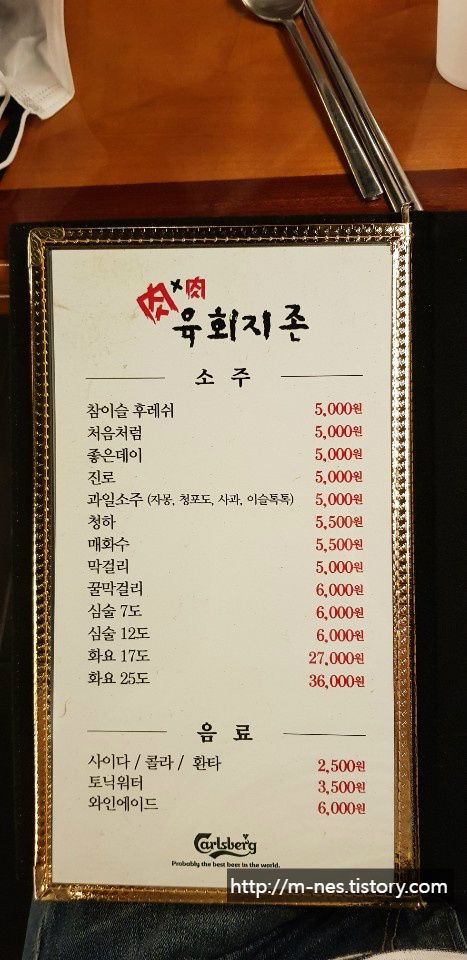 肉×肉
육회지존
소주
참이슬 후레쉬 5,000원
처음처럼 5,000원
좋은데이 5,000원
진로 5,000원
과일소주 (자몽, 청포도, 사과, 이슬톡톡) 5,000원
청하 5,500원
매화수 5,500원
막걸리 5,000원
꿀막걸리 6,000원
심술 7도 6,000원
심술 12도 6,000원
화요 17도 27,000원
화요 25도 36,000원
음료
사이다 / 콜라 / 환타 2,500원
토닉워터 3,500원
와인에이드 6,000원
Carlsberg
Probably the best beer in the world.
http://m-nes.tistory.com